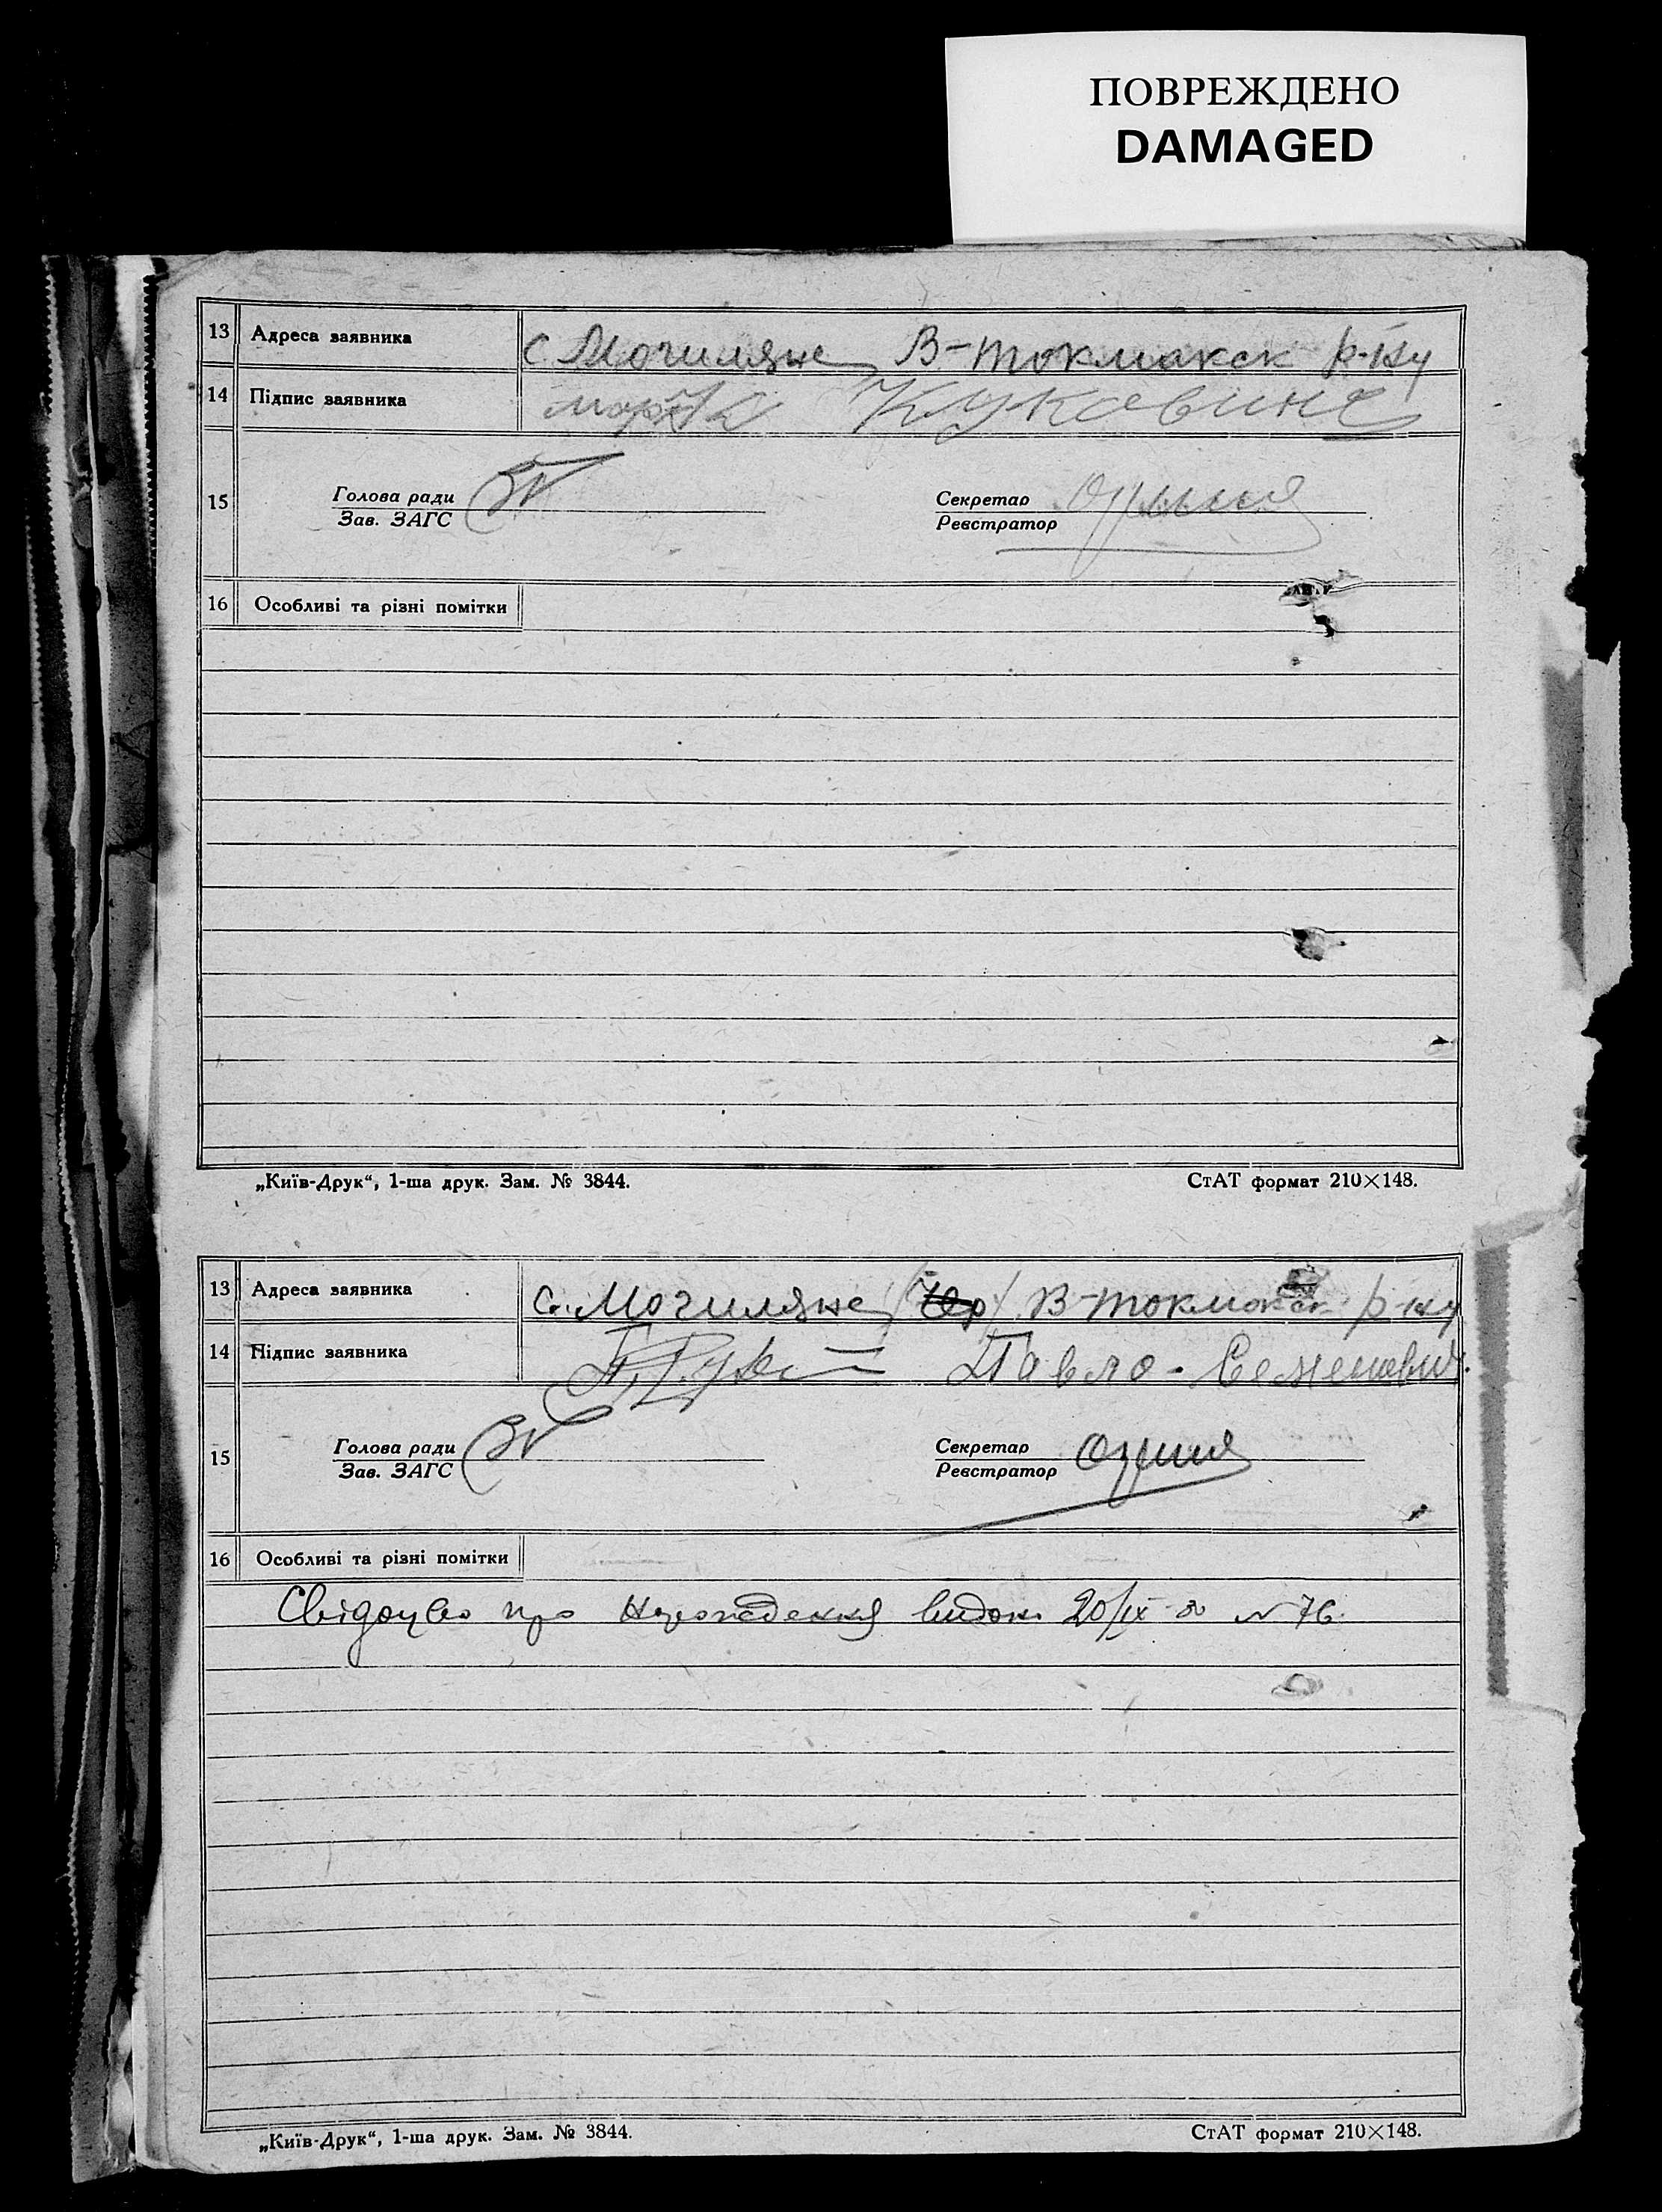 ПОВРЕЖДЕНО
DAMAGED
13 Адреса заявника с. Могиляне В-токмакск р-ну
14 Підпис заявника
15 Голова ради Секретар
Зав. ЗАГС Реєстратор
16 Особливі та різні помітки
„Київ-Друк“, 1-ша друк. Зам. № 3844. СтАТ формат 210×148.
13 Адреса заявника с. Могиляне В-токмакск р-ну
14 Підпис заявника Павло Семенович
15 Голова ради Секретар
Зав. ЗАГС Реєстратор
16 Особливі та різні помітки
Свідоцво про Народження видано 20/IX-30 N 76.
„Київ-Друк“, 1-ша друк. Зам. № 3844. СтАТ формат 210×148.